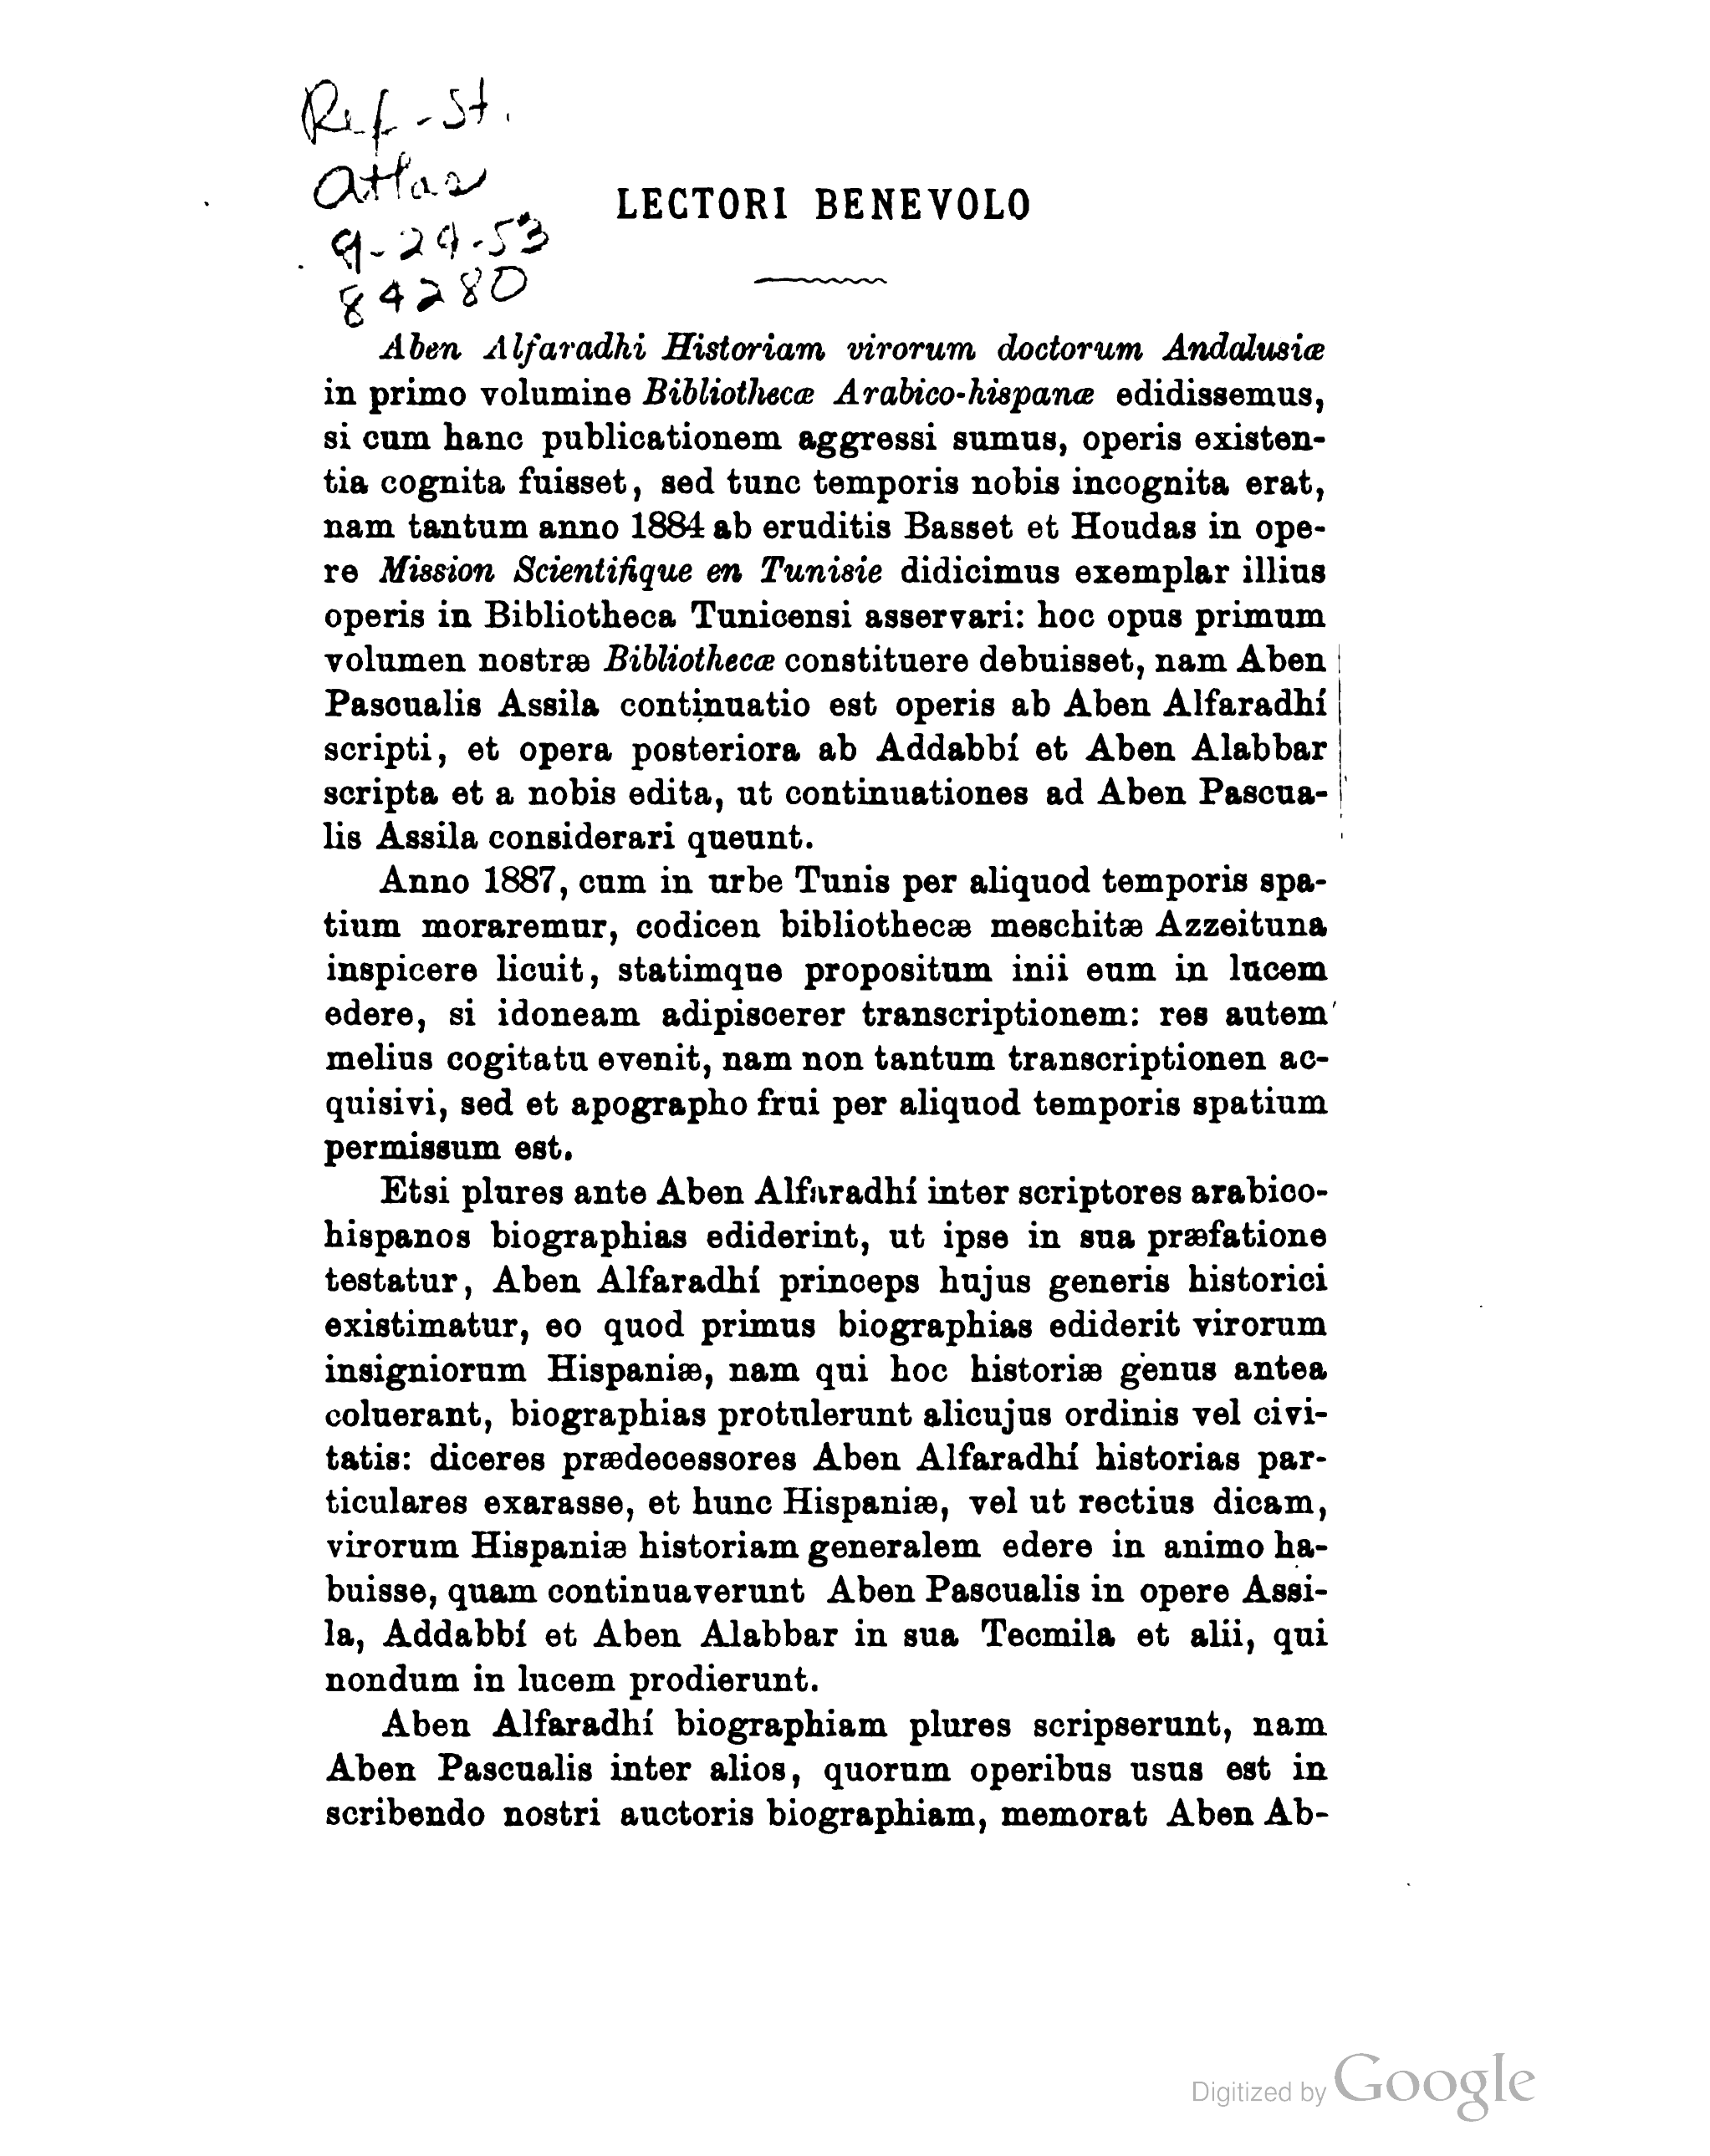 Ref-St.
Atlas
9-29-53
84280
LECTORI BENEVOLO
Aben Alfaradhi Historiam virorum doctorum Andalusiæ
in primo volumine Bibliothecæ Arabico-hispanæ edidissemus,
si cum hanc publicationem aggressi sumus, operis existen-
tia cognita fuisset, sed tunc temporis nobis incognita erat,
nam tantum anno 1884 ab eruditis Basset et Houdas in ope-
re Mission Scientifique en Tunisie didicimus exemplar illius
operis in Bibliotheca Tunicensi asservari: hoc opus primum
volumen nostræ Bibliothecæ constituere debuisset, nam Aben
Pascualis Assila continuatio est operis ab Aben Alfaradhí
scripti, et opera posteriora ab Addabbí et Aben Alabbar
scripta et a nobis edita, ut continuationes ad Aben Pascua-
lis Assila considerari queunt.
Anno 1887, cum in urbe Tunis per aliquod temporis spa-
tium moraremur, codicen bibliothecæ meschitæ Azzeituna
inspicere licuit, statimque propositum inii eum in lucem
edere, si idoneam adipiscerer transcriptionem: res autem
melius cogitatu evenit, nam non tantum transcriptionen ac-
quisivi, sed et apographo frui per aliquod temporis spatium
permissum est.
Etsi plures ante Aben Alfaradhí inter scriptores arabico-
hispanos biographias ediderint, ut ipse in sua præfatione
testatur, Aben Alfaradhí princeps hujus generis historici
existimatur, eo quod primus biographias ediderit virorum
insigniorum Hispaniæ, nam qui hoc historiæ genus antea
coluerant, biographias protulerunt alicujus ordinis vel civi-
tatis: diceres prædecessores Aben Alfaradhí historias par-
ticulares exarasse, et hunc Hispaniæ, vel ut rectius dicam,
virorum Hispaniæ historiam generalem edere in animo ha-
buisse, quam continuaverunt Aben Pascualis in opere Assi-
la, Addabbí et Aben Alabbar in sua Tecmila et alii, qui
nondum in lucem prodierunt.
Aben Alfaradhí biographiam plures scripserunt, nam
Aben Pascualis inter alios, quorum operibus usus est in
scribendo nostri auctoris biographiam, memorat Aben Ab-
Digitized by Google